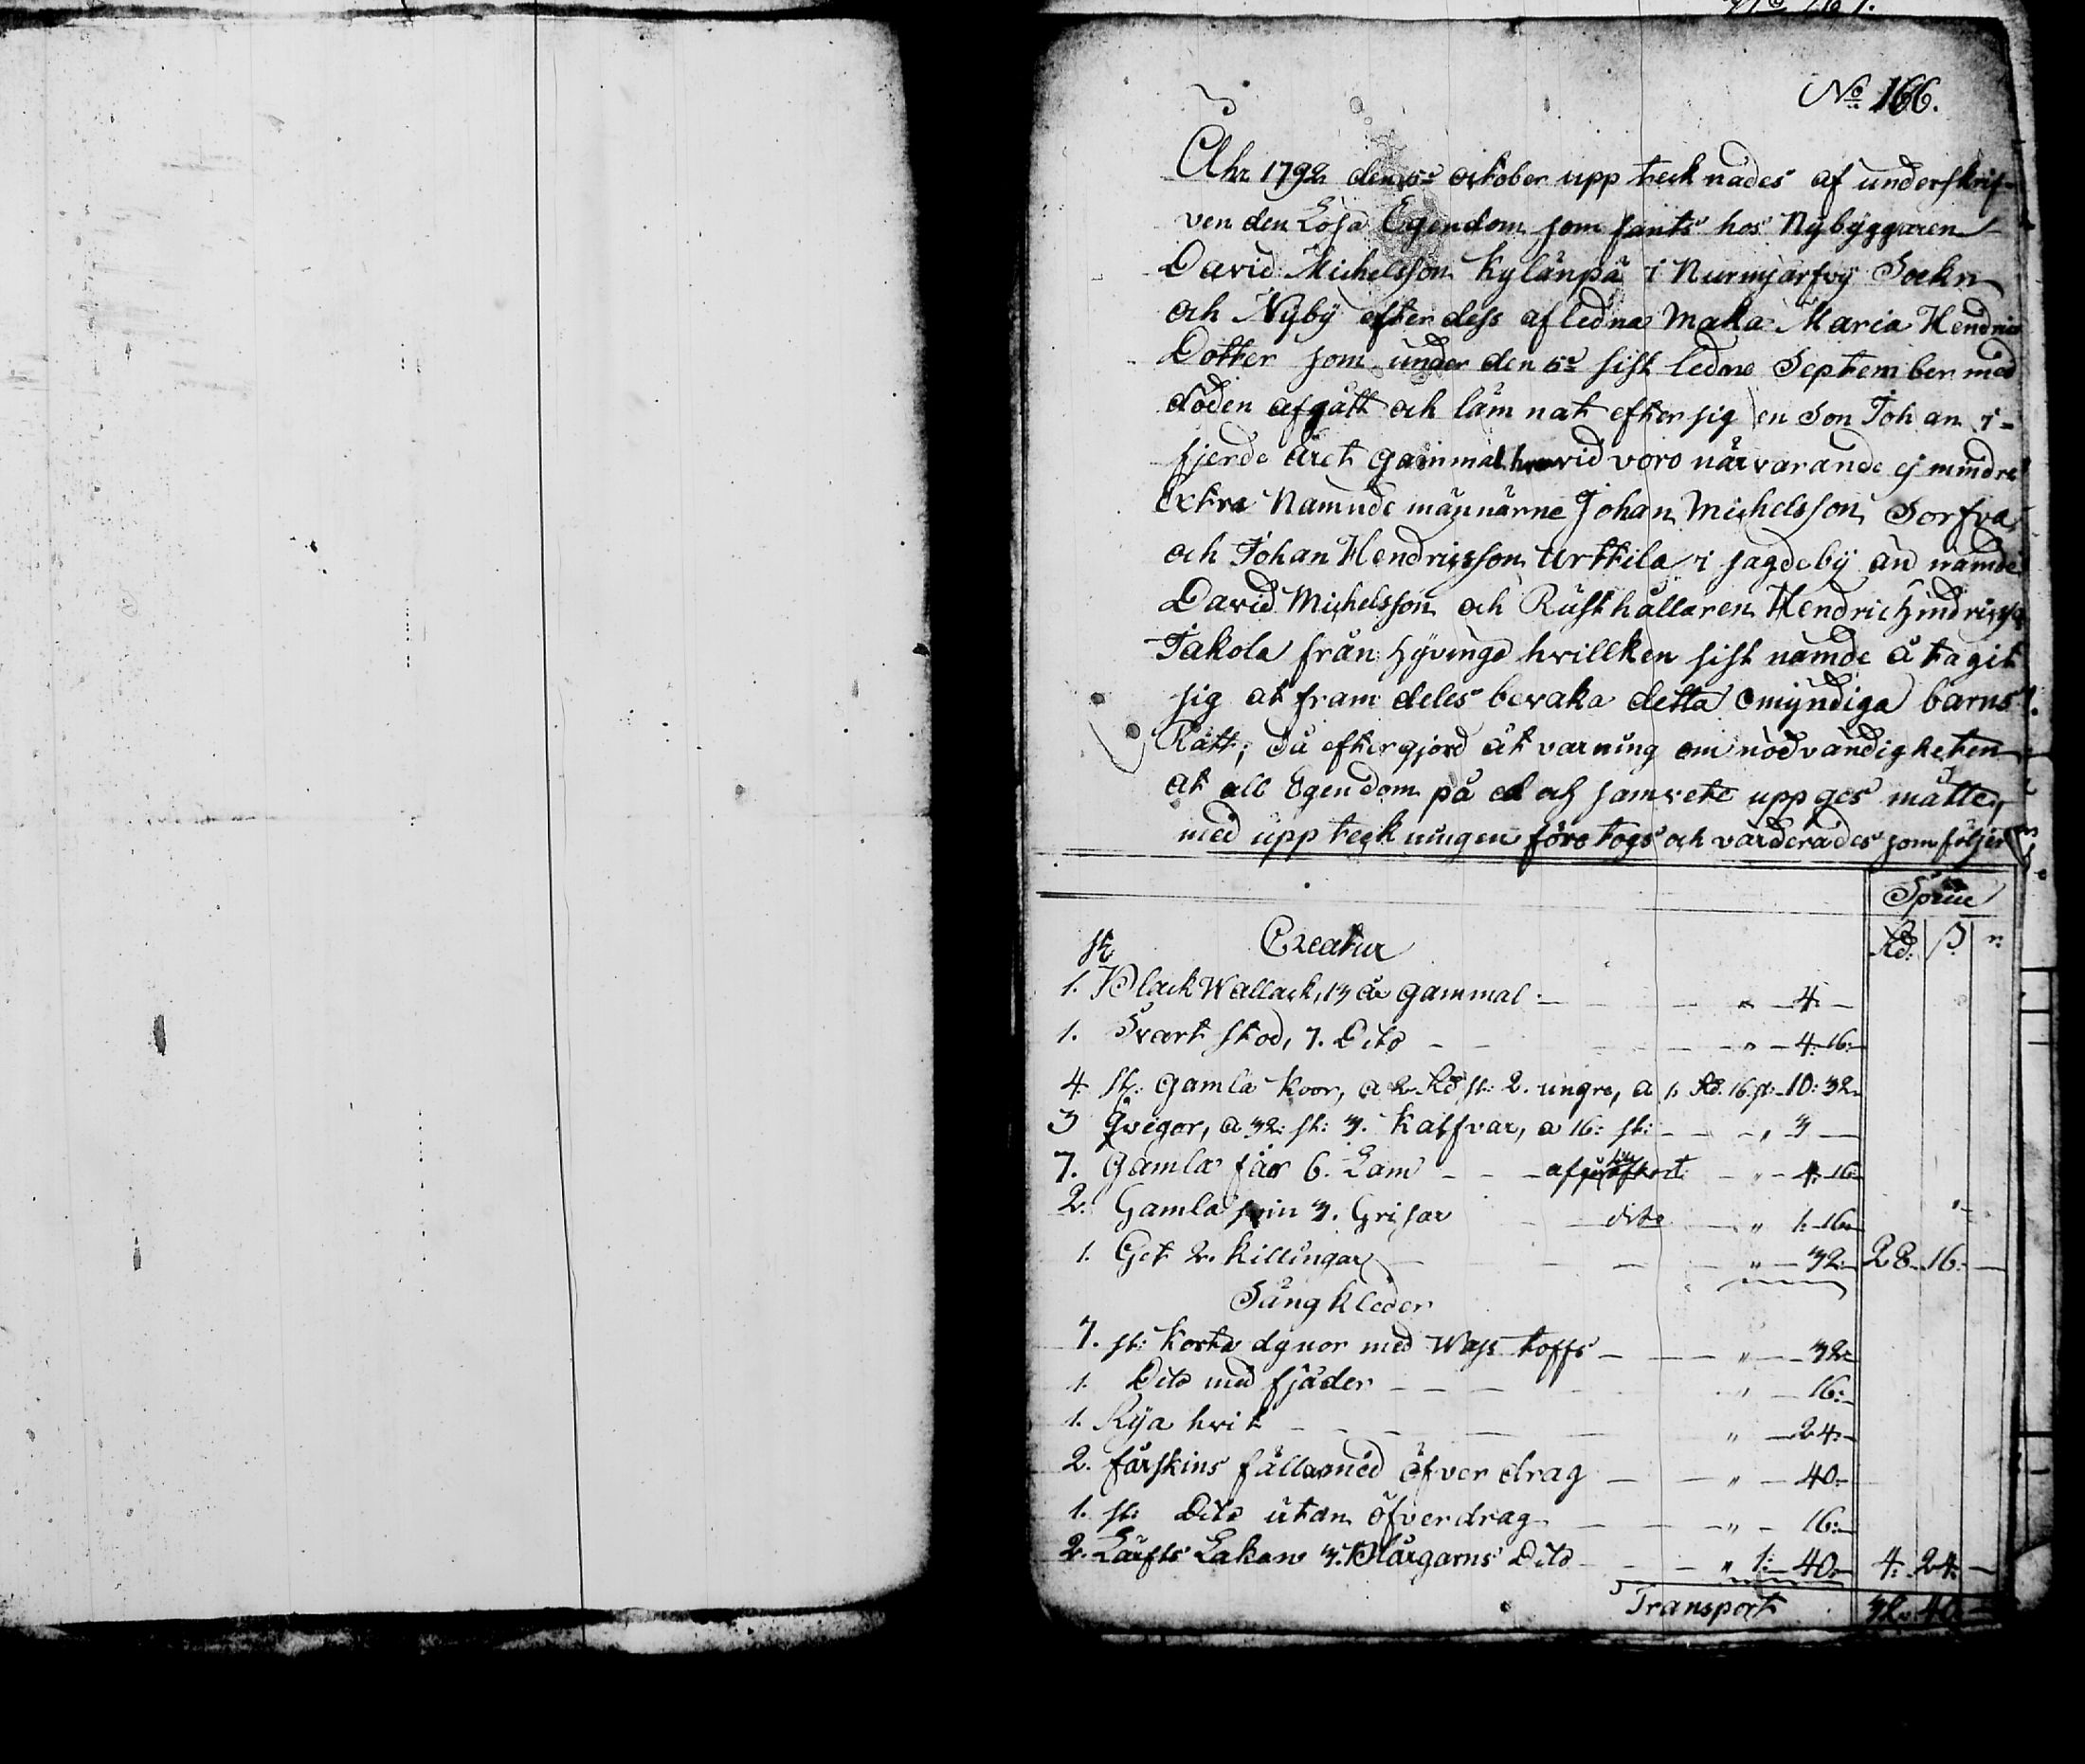 No 166.
Åhr 1792 den 5e october upp tecknades af underskrif-
ven den Lösa Egendom som fants hos Nybyggaren
David Michelsson Kylänpä i Nurmjärfvy Sockn
och Nyby efter dess afledna Maka Maria Hendrics
Dotter som under den 5e sist ledne September med
döden afgått och läm nat efter sig en Son Johan i-
fjerde året gammal hvarvid voro närvarande ej mindre
Extra Nämnde männärne Johan Michelsson Sorfva
och Johan Hendricsson Urttila i sagde by än nämde
David Michelsson och Rusthållaren Hendric Hindricss
Jakola från Hyvinge hvillken sist nämde å tagit
sig at fram deles bevaka detta omyndiga barns
Rätt; då efter gjord åt varning om nödvändigheten
at all Egendom på ed och samvete uppges måtte,
med upp teckningen före togs och värderades som följer
Spcie
st Creatur Rd. ß. r:
1. Black Wallack, 13 år gammal " 4. —
1. Svart stod, 7. Dito " 4. 16.
4. st: gamla koor, a 2 Rd st: 2. ungre, a 1. Rd. 16. st: 10: 32.
3 Qvigor, a 32: st: 3. kalfvar, a 16: st: " 3 —
7. gamla får 6. Lam " 4. 16.
2. Gamla svin 3. Grisar dito " 1. 16.
1. Get 2. killingar " 32. 28. 16. —
Sängkleder
7. st: korta dynor med Wass toffs " 32.
1. Dito med fjäder " 16.
1. Rya hvit " 24.
2. fårskins fällar med öfver drag " 40.
1. st: Dito utan öfverdrag " 16.
2. Lärfts Lakan 3. Blårgarns Dito " 1: 40. 4. 24. —
Transport 32. 40. —